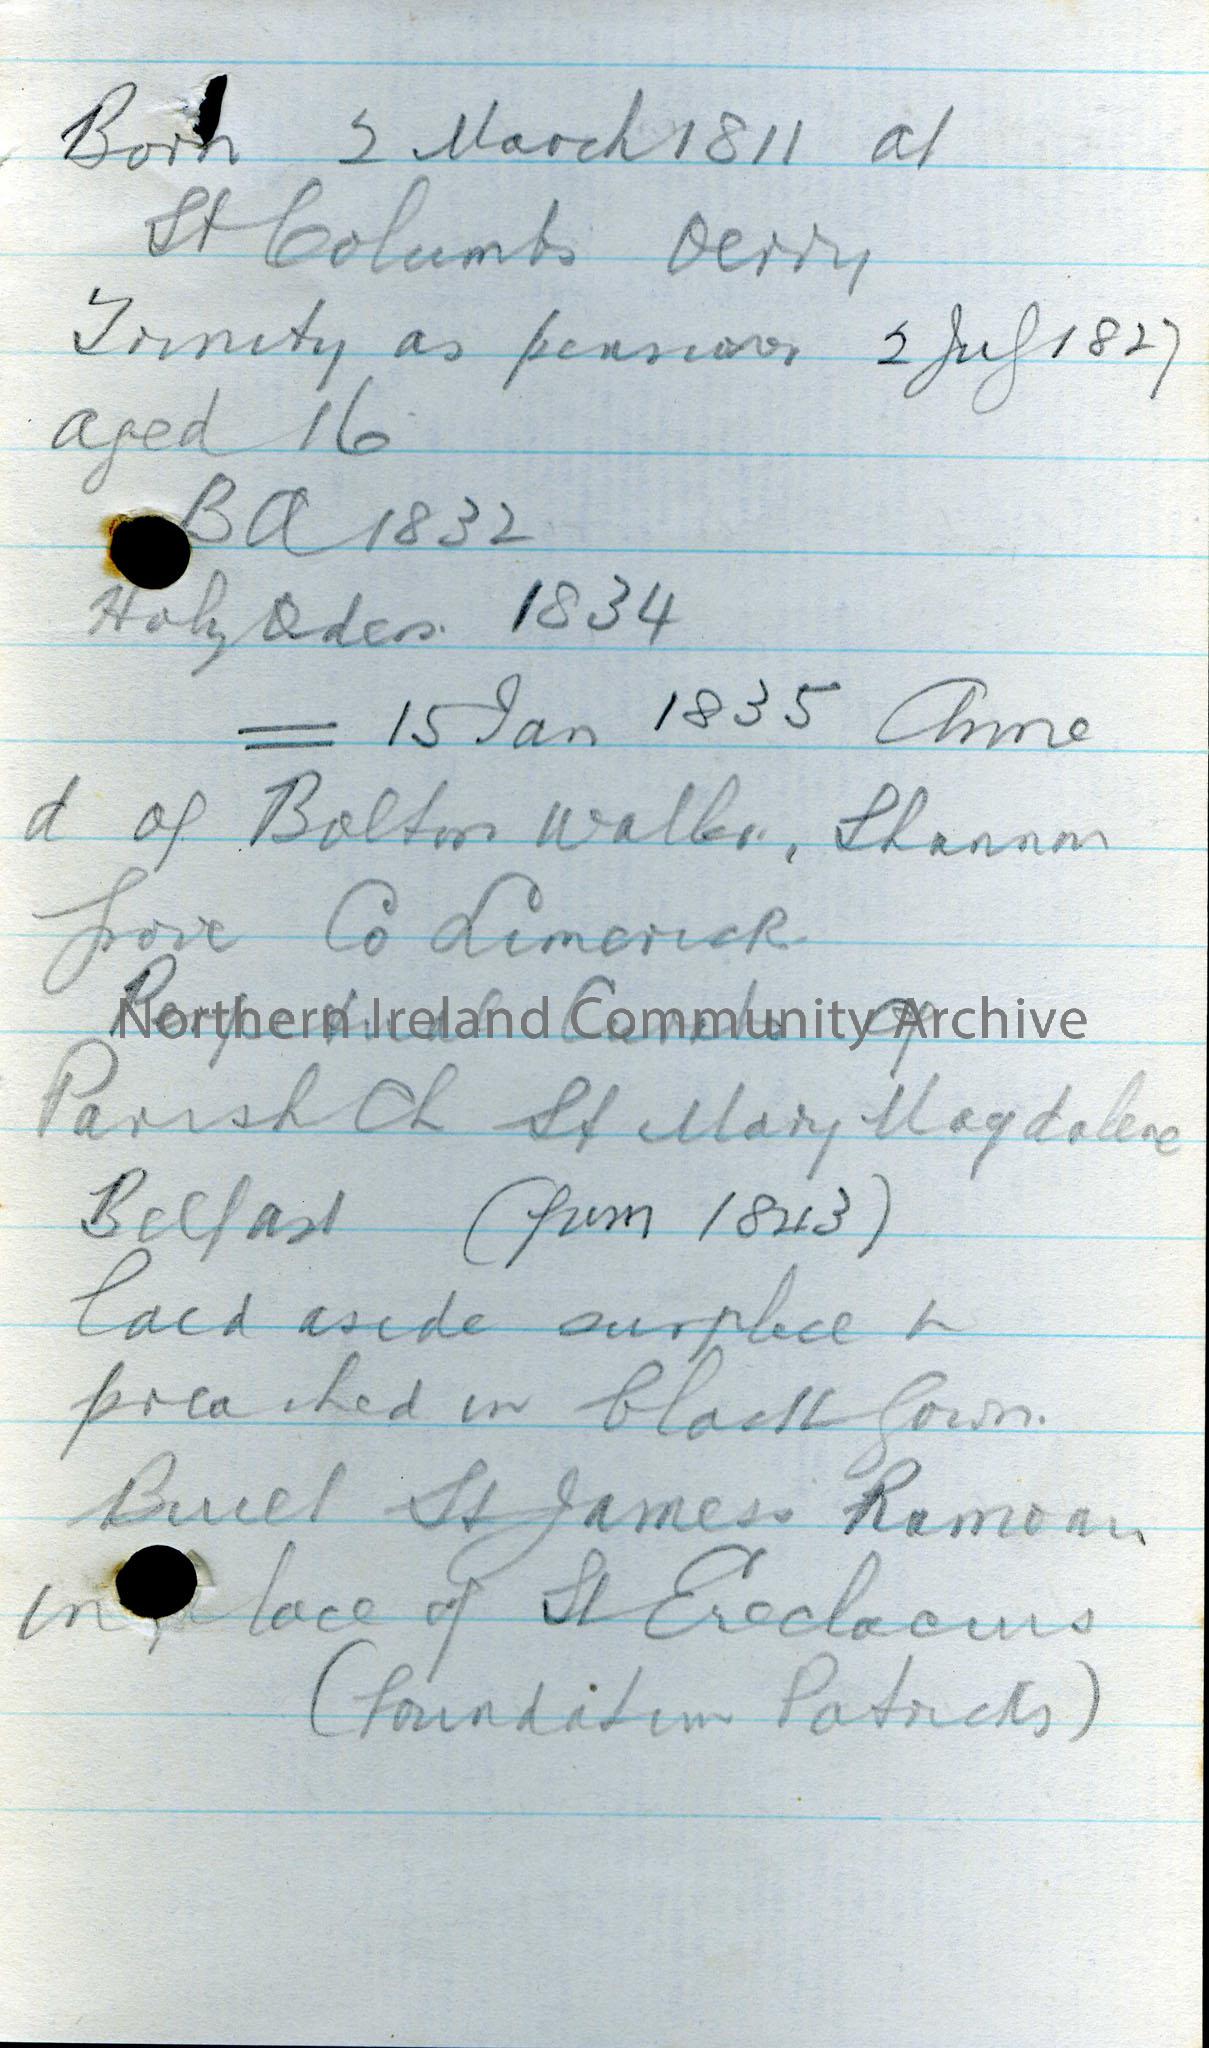 Born 2 March 1811 at
St Columbs Derry
Trinity as pensioner 2 July 1827
aged 16
BA 1832
Holy Orders 1834
= 15 Jan 1835 Anne
d of Bolton Waller, Shannon
Grove Co Limerick
Perpetual Curate of
Northern Ireland Community Archive
Parish Ch St Mary Magdalene
Belfast (from 1843)
laid aside surplice &
preached in black gown.
Buil St James's Ramoan
in place of St Ereclacius
(foundation Patricks)